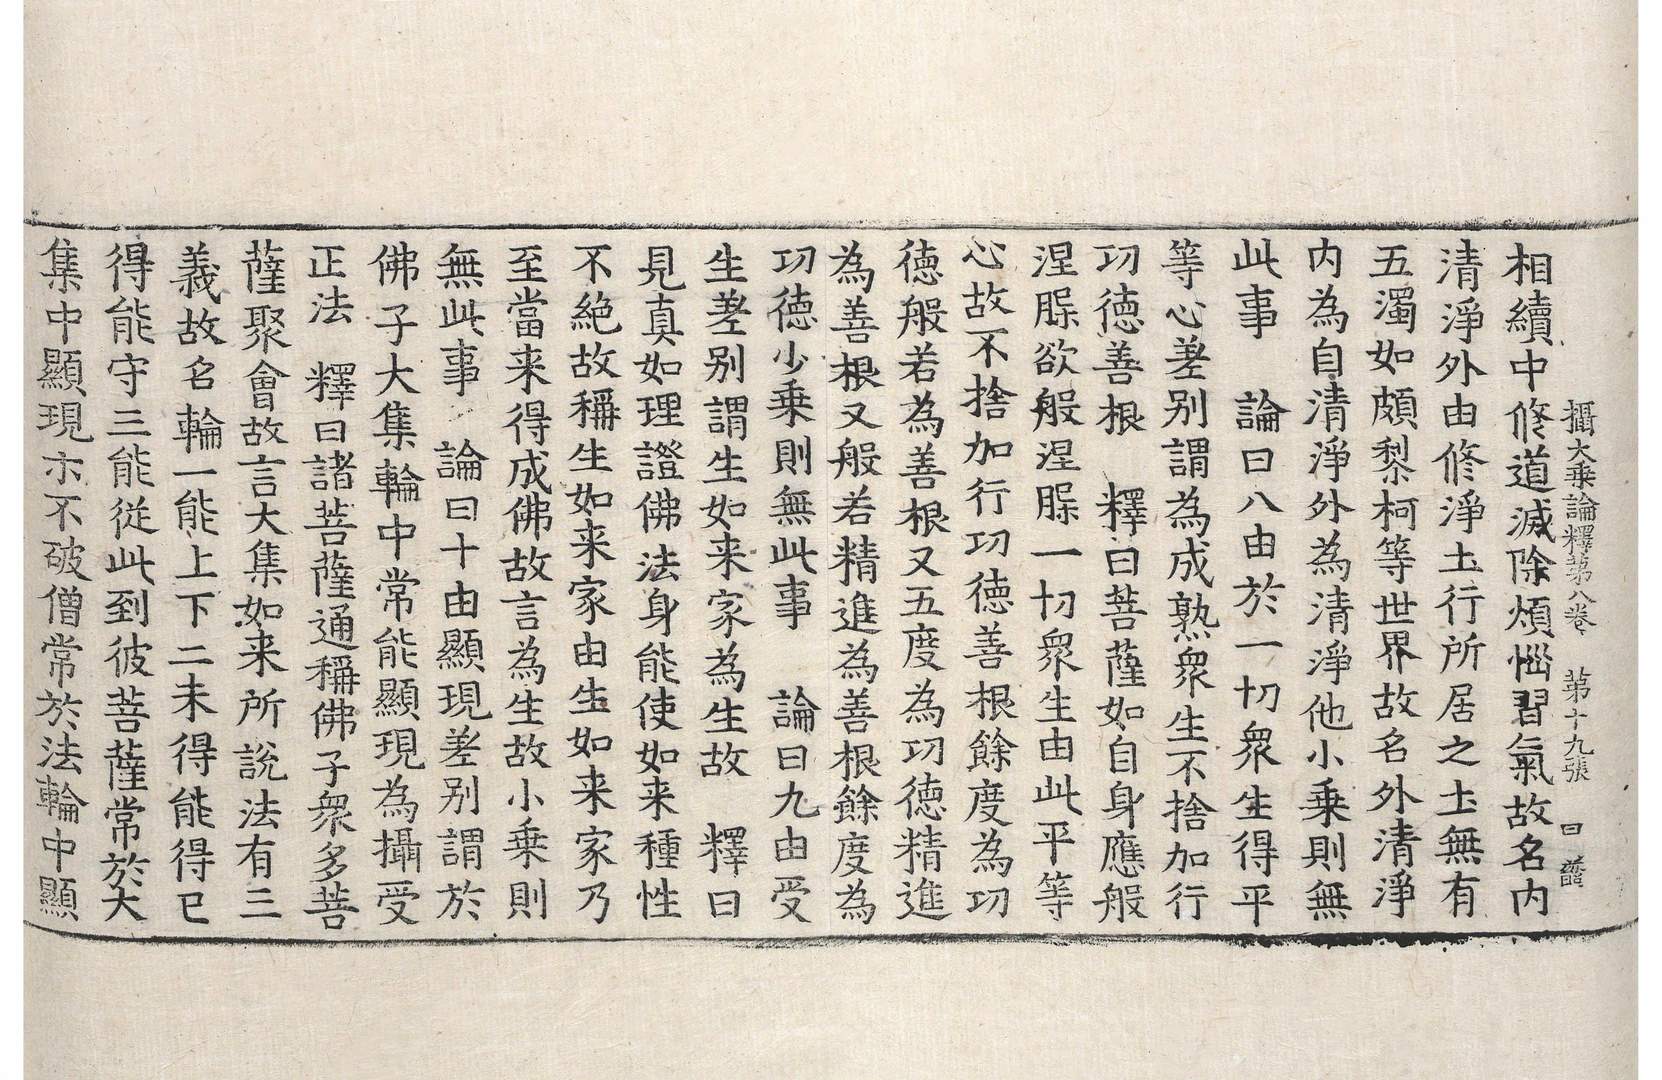 攝大乗論釋第八卷　第十九張　曰
相續中修道滅除煩惱習氣故名内
清淨外由修淨土行所居之土無有
五濁如頗黎柯等世界故名外清淨
内為自清淨外為清淨他小乗則無
此事　論曰八由於一切衆生得平
等心差别謂為成熟衆生不捨加行
功德善根　釋曰菩薩如自身應般
涅槃欲般涅槃一切衆生由此平等
心故不捨加行功德善根餘度為功
德般若為善根又五度為功德精進
為善根又般若精進為善根餘度為
功德少乗則無此事　論曰九由受
生差别謂生如来家為生故　釋曰
見真如理證佛法身能使如来種性
不絶故稱生如来家由生如来家乃
至當来得成佛故言為生故小乗則
無此事　論曰十由顯現差别謂於
佛子大集輪中常能顯現為攝受
正法　釋曰諸菩薩通稱佛子衆多菩
薩聚會故言大集如来所說法有三
義故名輪一能上下二未得能得已
得能守三能從此到彼菩薩常於大
集中顯現亦不破僧常於法輪中顯